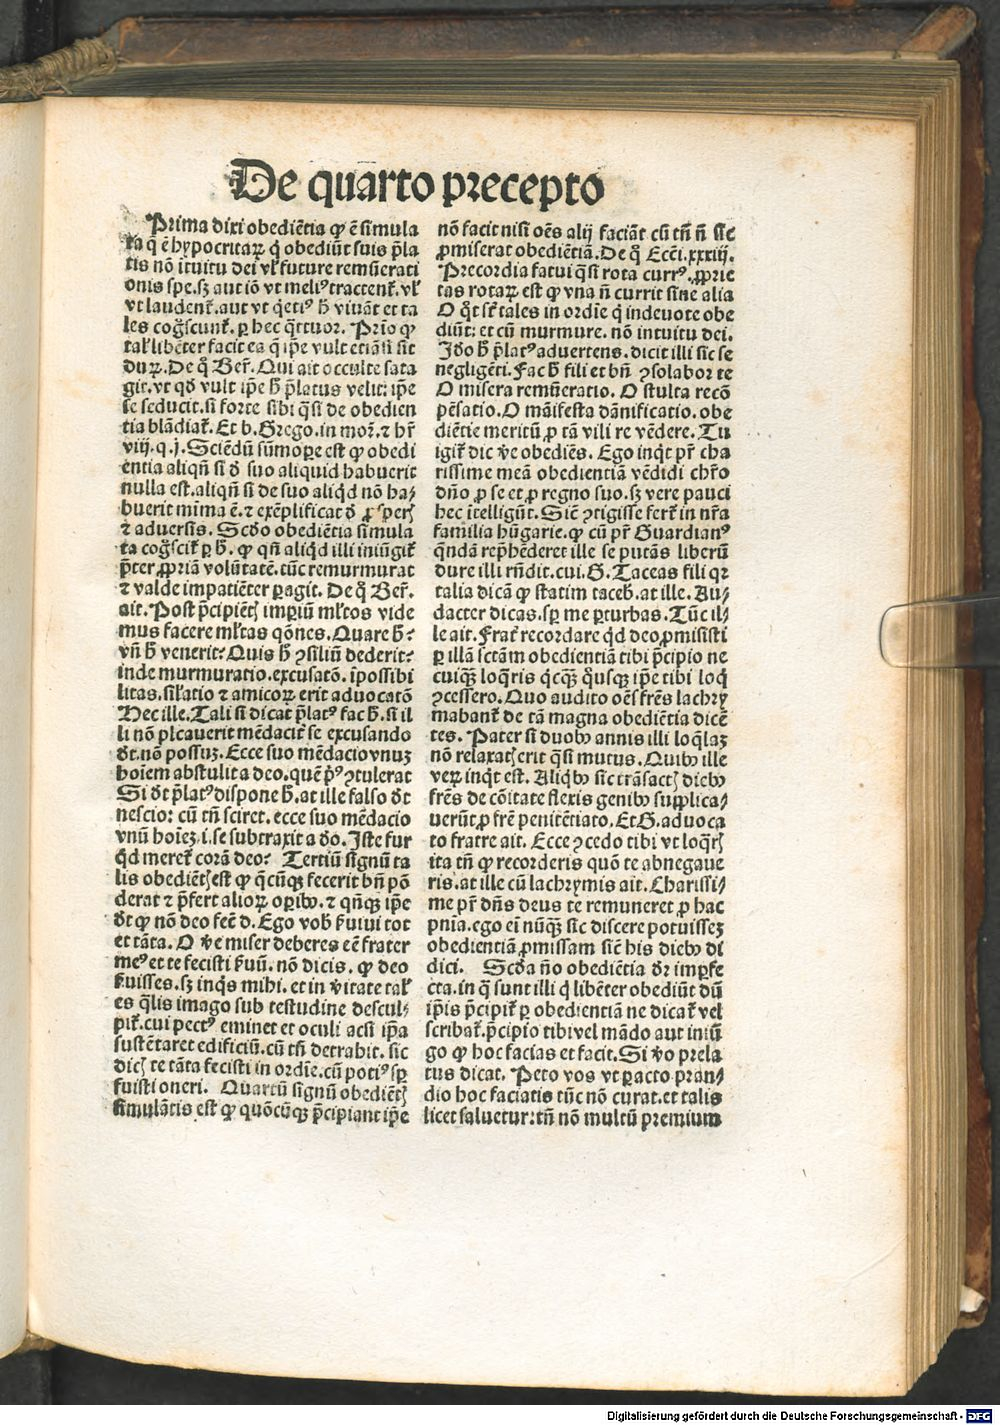 De quarto precepto
Prima dixi obediētia ꝙ ē simula
ta q̄ ē hypocritaꝝ q̇ obediūt suis p̄la
tis nō ītuitu dei vl̓ future remūerati
onis spe. sꝫ aut iō vt meliꝰ tractent̄. vl̓
vt laudent̄. aut vt q̇etiꝰ h̄ viuāt et ta
les cog̓scunt̄. ꝑ hec q̄ttuor. Prīo ꝙ
tal̓ libēter facit ea q̄ ip̄e vult etiāsi sit
duꝝ. De q̊ Ber̄. Qui ait occulte sata
git. vt qd̓ vult ip̄e h̄ p̄latus velit: ip̄e
se seducit. si forte sibi q̄si de obedien
tia blādiat̄. Et b. Grego. in mor̄. ⁊ hr̄
viij. q. j. Sciēdū sūmoꝑe est ꝙ obedi
entia aliqn̄ si d̓ suo aliquid habuerit
nulla est. aliqn̄ si de suo aliq̇d nō ha⸗
buerit mīma ē. ⁊ exēplificat d̓ ꝓsperꝭ
⁊ aduersis. Scd̓o obediētia simula
ta cog̓scit̄ ꝑ h̄. ꝙ qn̄ aliq̇d illi iniūgit̄
p̄ter ꝓpriā volūtatē. tūc remurmurat
⁊ valde impatiēter ꝑagit. De q̊ Ber̄.
ait. Post p̄cipiētꝭ imꝑiū ml̓tos vide
mus facere ml̓tas q̄ōnes. Quare h̄?
vn̄ h̄ venerit? Quis h̄ ꝯsiliū dederit?
inde murmuratio. excusatō. īpossibi
litas. sil̓atio ⁊ amicoꝝ erit aduocatō
Hec ille. Tali si dicat p̄latꝰ fac h̄. si il
li nō pl̓cauerit mēdacit̓ se excusando
d̓t. nō possuꝫ. Ecce suo mēdacio vnuꝫ
hoīem abstulit a deo. quē p̄ꝰ ꝯtulerat
Si d̓t p̄latꝰ dispone h̄. at ille falso d̓t
nescio: cū tn̄ sciret. ecce suo mēdacio
vnū hoīeꝫ. i. se subtraxit a d̓o. Iste fur
q̇d meret̄ corā deo? Tertiū signū ta
lis obediētꝭ est ꝙ q̄cūqꝫ fecerit bn̄ pō
derat ⁊ p̄fert alioꝝ oꝑibꝰ. ⁊ qn̄qꝫ ip̄e
d̓t ꝙ nō deo fec̄ d̓. Ego vob̄ ẜuiui tot
et tāta. O v̓e miser deberes eē frater
meꝰ et te fecisti ẜuū. nō dicis. ꝙ deo
ẜuisses. sꝫ inq̇s mihi. et in v̓itate tal̓
es q̄lis imago sub testudine desculꝭ⸗
pit̄. cui pectꝰ eminet et oculi acsi ip̄a
sustētaret edificiū. cū tn̄ detrahit. sic
dicꝭ te tāta fecisti in ordīe. cū potiꝰ sꝑ
fuisti oneri. Quartū signū obediētꝭ
simulātis est ꝙ quōcūqꝫ p̄cipiant ip̄e
nō facit nisi oēs alij faciāt cū tn̄ n̄ sic
ꝓmiserat obediētiā. De q̊ Ecc̄i. xxxiij.
Precordia fatui q̄si rota currꝰ. ꝓprie
tas rotaꝝ est ꝙ vna n̄ currit sine alia
O q̊t st̄ tales in ordīe q̇ indeuote obe
diūt: et cū murmure. nō intuitu dei.
Id̓o h̄ p̄latꝰ aduertens. dicit illi sic se
negligēti. Fac h̄ fili et bn̄ ꝯsolabor te
O misera remūeratio. O stulta recō
pēsatio. O māifesta dānificatio. obe
diētie meritū ꝓ tā vili re vēdere. Tu
igit̄ dic v̓e obediēs. Ego inq̇t pr̄ cha
rissime meā obedientiā vēdidi chr̄o
dn̄o ꝓ se et ꝓ regno suo. sꝫ vere pauci
hec ītelligūt. Sic̄ ꝯtigisse fert̄ in nr̄a
familia hūgarie. ꝙ cū pr̄ Guardianꝰ
q̄ndā rep̄hēderet ille se putās liberū
dure illi rn̄dit. cui. G. Taceas fili qꝛ
talia dicā ꝙ statim taceb̄. at ille. Au⸗
dacter dicas. sꝑ me ꝑturbas. Tūc il⸗
le ait. Frat̄ recordare q̇d deo ꝓmisisti
ꝑ illā sctām obedientiā tibi p̄cipio ne
cuiqꝫ loq̄ris q̇cqꝫ q̇usqꝫ ip̄e tibi loq̇
ꝯcessero. Quo audito oēs fr̄es lachry
mabant̄ de tā magna obediētia dicē
tes. Pater si duobꝰ annis illi loq̄laꝫ
nō relaxatꝭ erit q̄si mutus. Quibꝰ ille
veꝝ inq̇t est. Aliqbꝰ sic trāsactꝭ diebꝰ
fr̄es de cōitate flexis genibꝰ supplica⸗
uerūt ꝓ fr̄e penitētiato. Et G. aduoca
to fratre ait. Ecce ꝯcedo tibi vt loq̄rꝭ
ita tn̄ ꝙ recorderis quō te abnegaue
ris. at ille cū lachrymis ait. Charissi⸗
me pr̄ dn̄s deus te remuneret ꝓ hac
pn̄ia. ego ei nūqꝫ̄ sic discere potuisseꝫ
obedientiā ꝓmissam sic̄ his diebꝰ di
dici. Scd̓a n̄o obediētia d̓r imꝑfe
cta. in q̄ sunt illi q̇ libēter obediūt dū
ip̄is p̄cipit̄ ꝑ obedientiā ne dicat̄ vel
scribat̄. p̄cipio tibi vel mādo aut iniū
go ꝙ hoc facias et facit. Si v̓o prela
tus dicat. Peto vos vt ꝑacto pran⸗
dio hoc faciatis tūc nō curat. et talis
licet saluetur: tn̄ nō multū premium
Digitalisierung gefördert durch die Deutsche Forschungsgemeinschaft - DFG